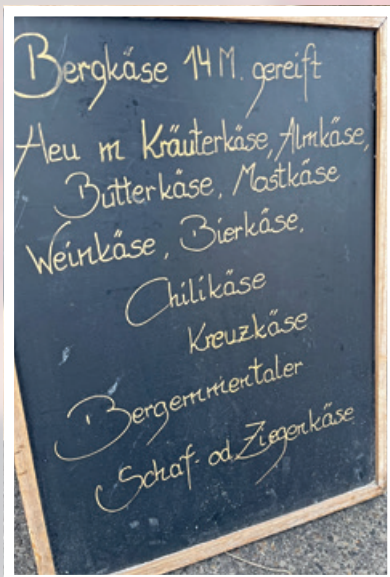 Bergkäse 14 M. gereift
Heu m Kräuterkäse, Almkäse,
Butterkäse, Mostkäse
Weinkäse, Bierkäse,
Chilikäse
Kreuzkäse
Bergemmentaler
Schaf- od. Ziegenkäse